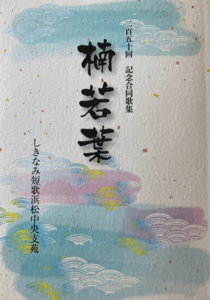 二百五十回 記念合同歌集
楠若葉
しきなみ短歌浜松中央支苑